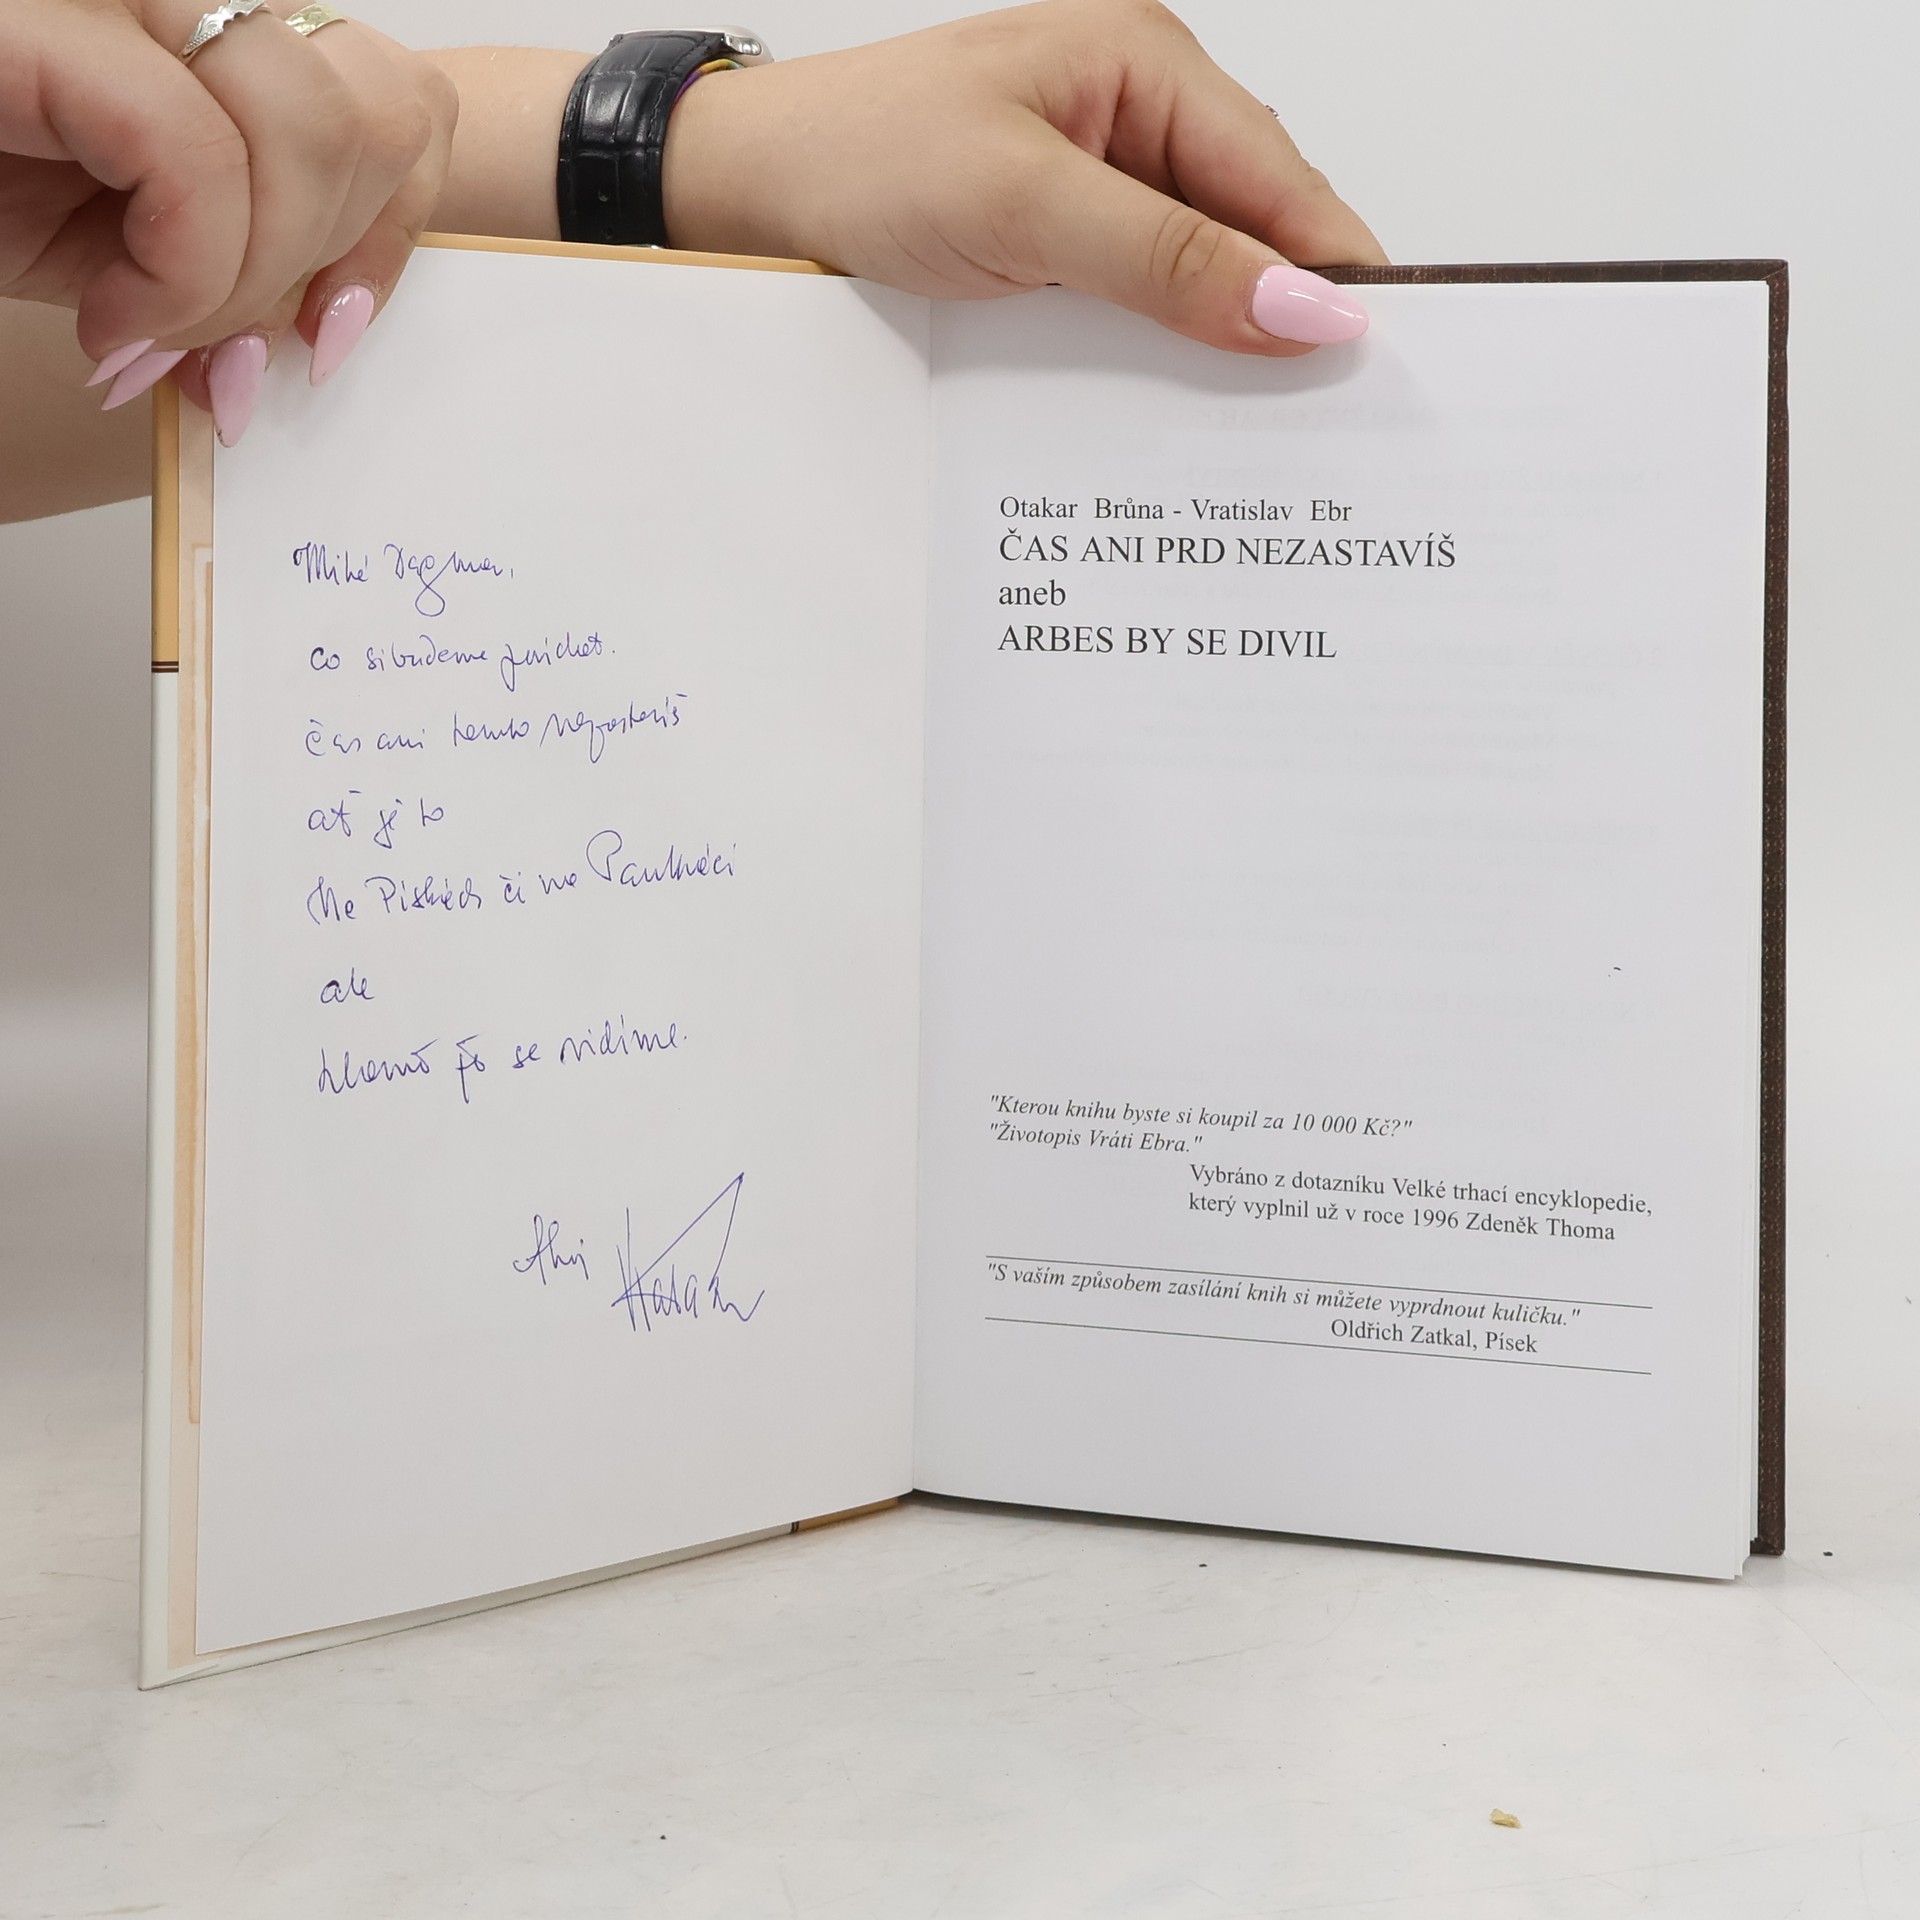 Milá Dagmar,
co si budeme
čas ani tento nezastavíš
ať je to
Na Pískách či na Pankráci
ale
hlavně že se vidíme.
Ahoj
Otakar Brůna - Vratislav Ebr
ČAS ANI PRD NEZASTAVÍŠ
aneb
ARBES BY SE DIVIL
"Kterou knihu byste si koupil za 10 000 Kč?"
"Životopis Vráti Ebra."
Vybráno z dotazníku Velké trhací encyklopedie,
který vyplnil už v roce 1996 Zdeněk Thoma
"S vaším způsobem zasílání knih si můžete vyprdnout kuličku."
Oldřich Zatkal, Písek